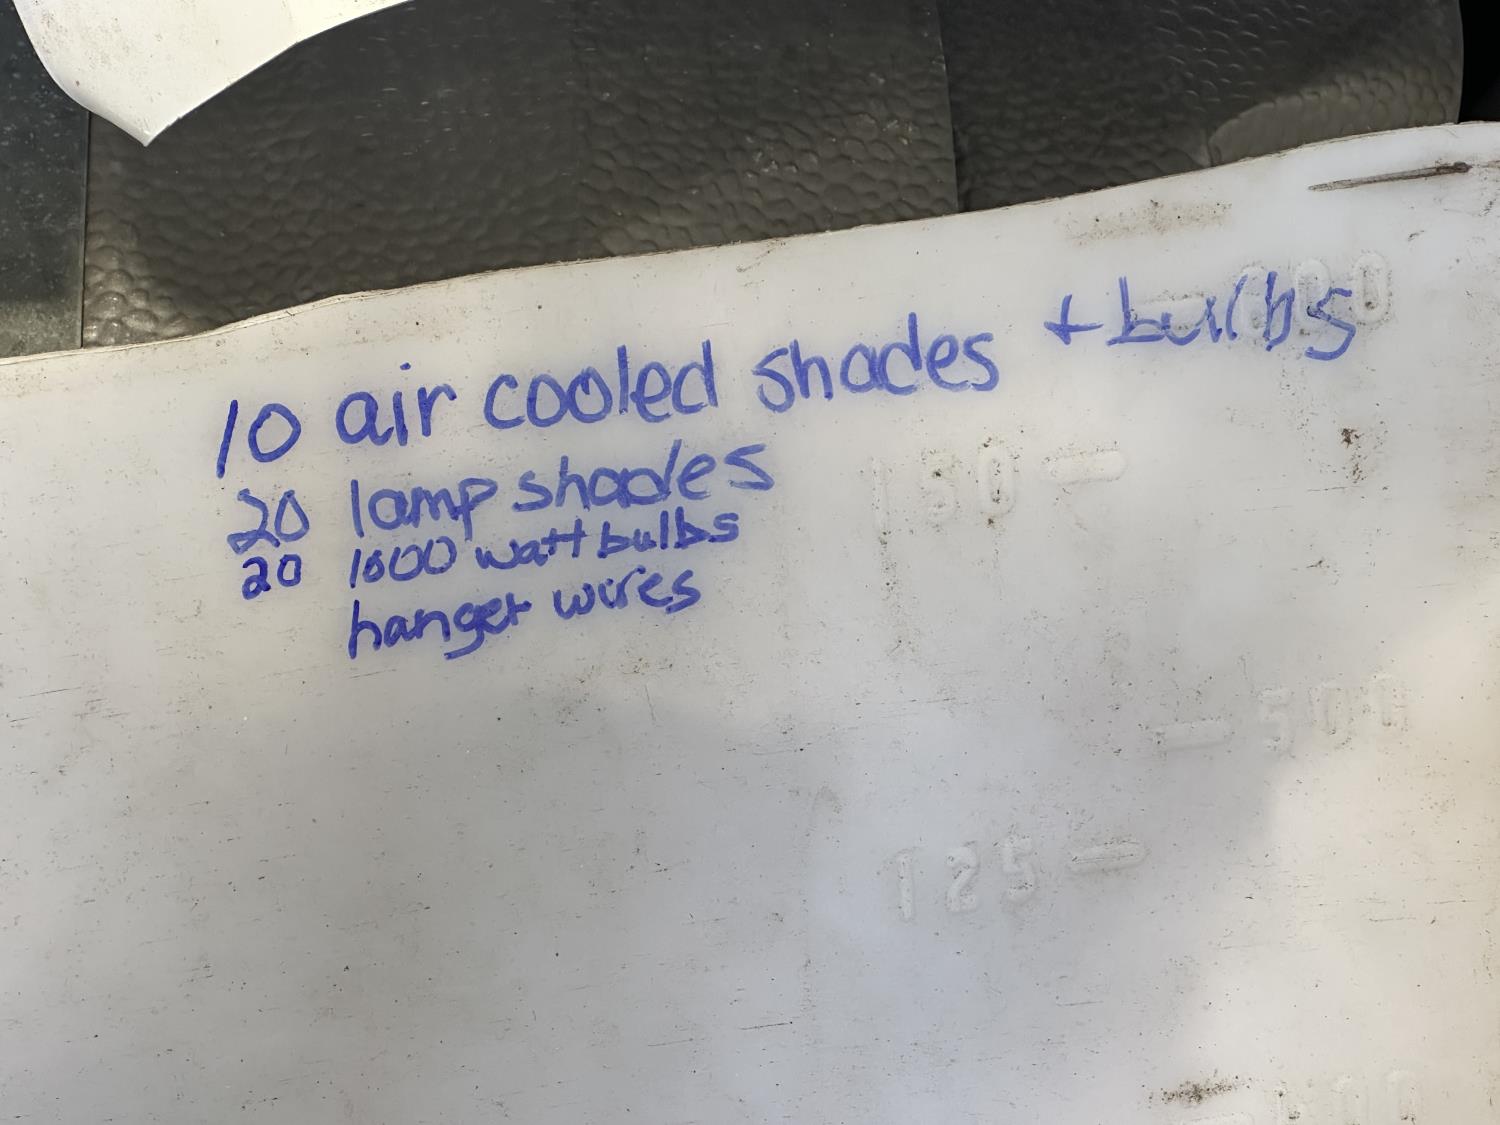 10 air cooled shades + bulbs
20 lamp shades
20 1000 watt bulbs
hanger wires
150
500
125